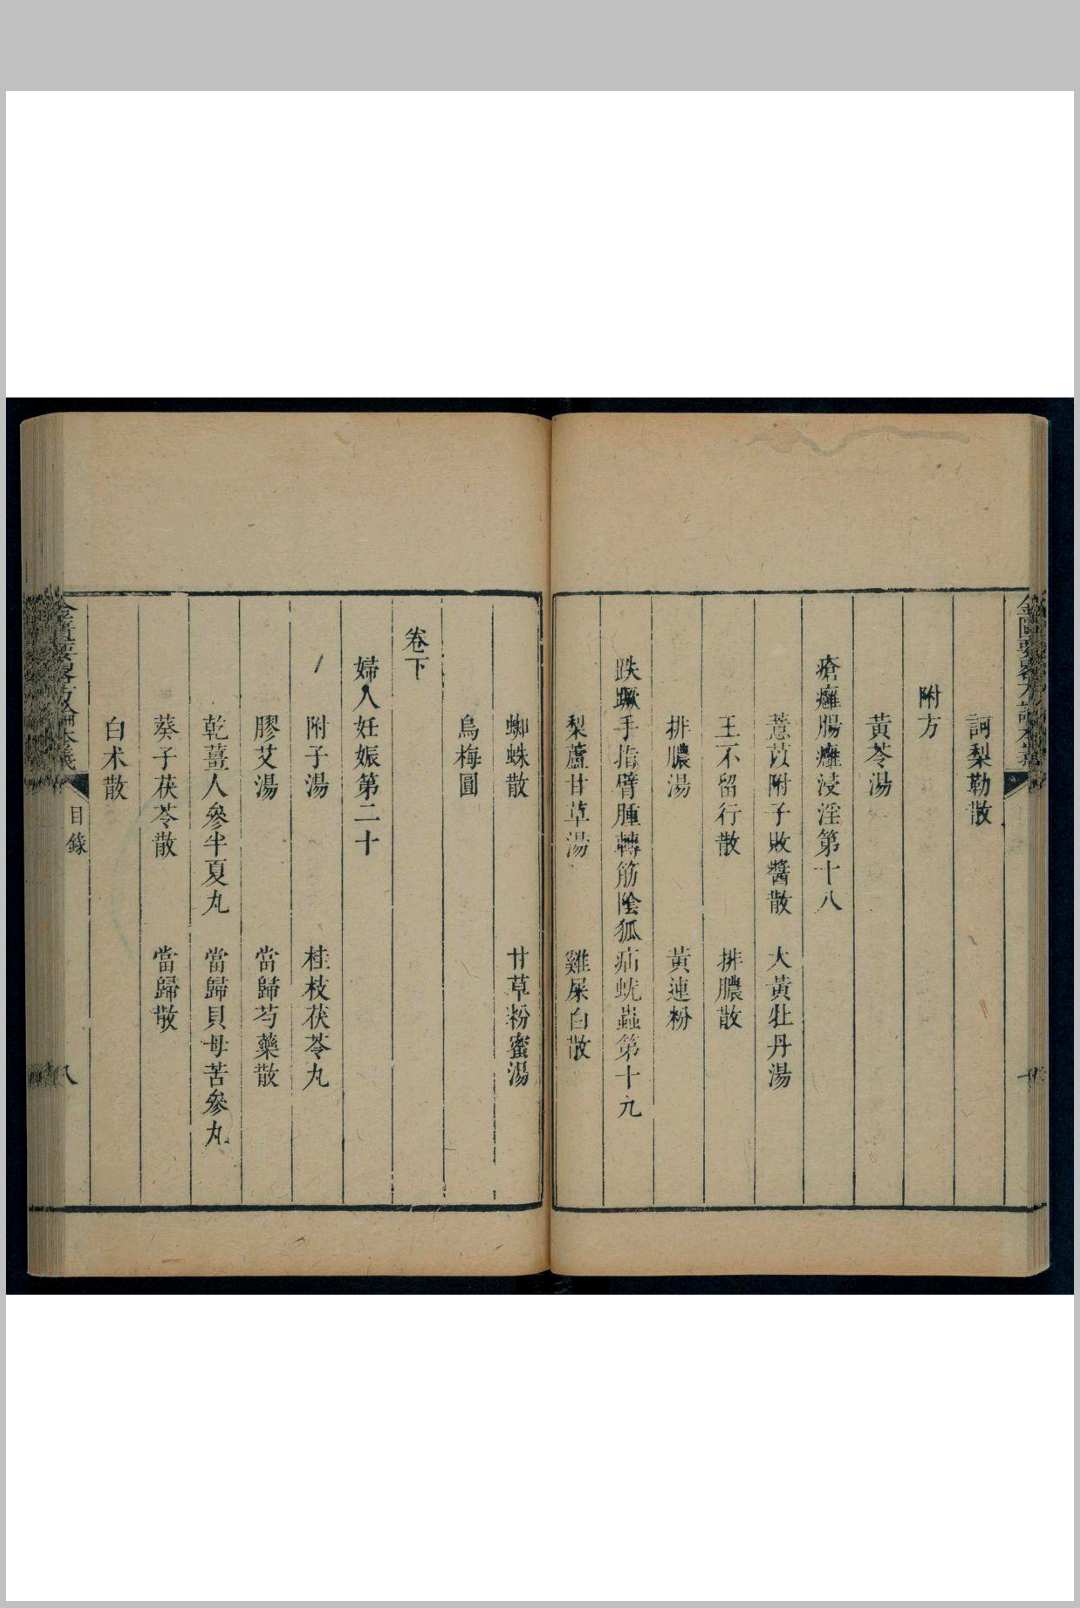 訶梨勒散
附方
黃芩湯
瘡癰腸癰浸淫第十八
薏苡附子敗醬散 大黃牡丹湯
王不留行散 排膿散
排膿湯 黃連粉
趺蹶手指臂腫轉筋陰狐疝蚘蟲第十九
梨蘆甘草湯 雞屎白散
蜘蛛散 甘草粉蜜湯
烏梅圓
卷下
婦人妊娠第二十
附子湯 桂枝茯苓丸
膠艾湯 當歸芍藥散
乾薑人參半夏丸 當歸貝母苦參丸
葵子茯苓散 當歸散
白术散
金匱要畧方論本義 目錄 八